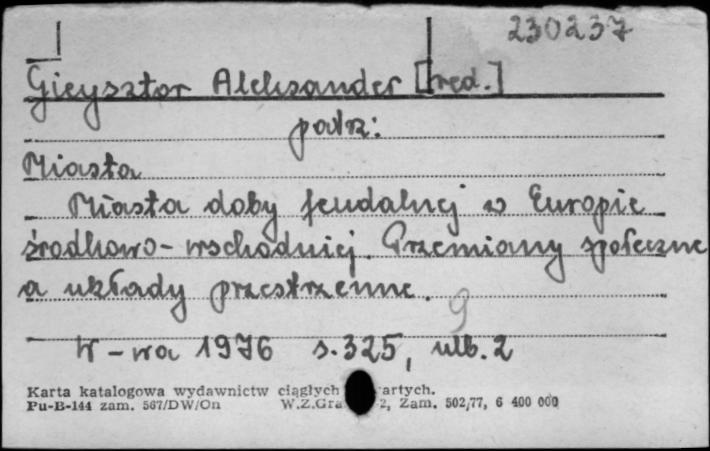 230237
Gieysztor Aleksander [red.]
patrz:
Miasta
Miasta doby feudalnej w Europie
środkowo-wschodniej. Przemiany społeczne
a układy przestrzenne.
9
W-wa 1976 s. 325, nlb. 2
Karta katalogowa wydawnictw ciągłych artych.
Pu-B-144 zam. 567/DW/On W.Z.Gra 2, Zam. 502/77, 6 400 000